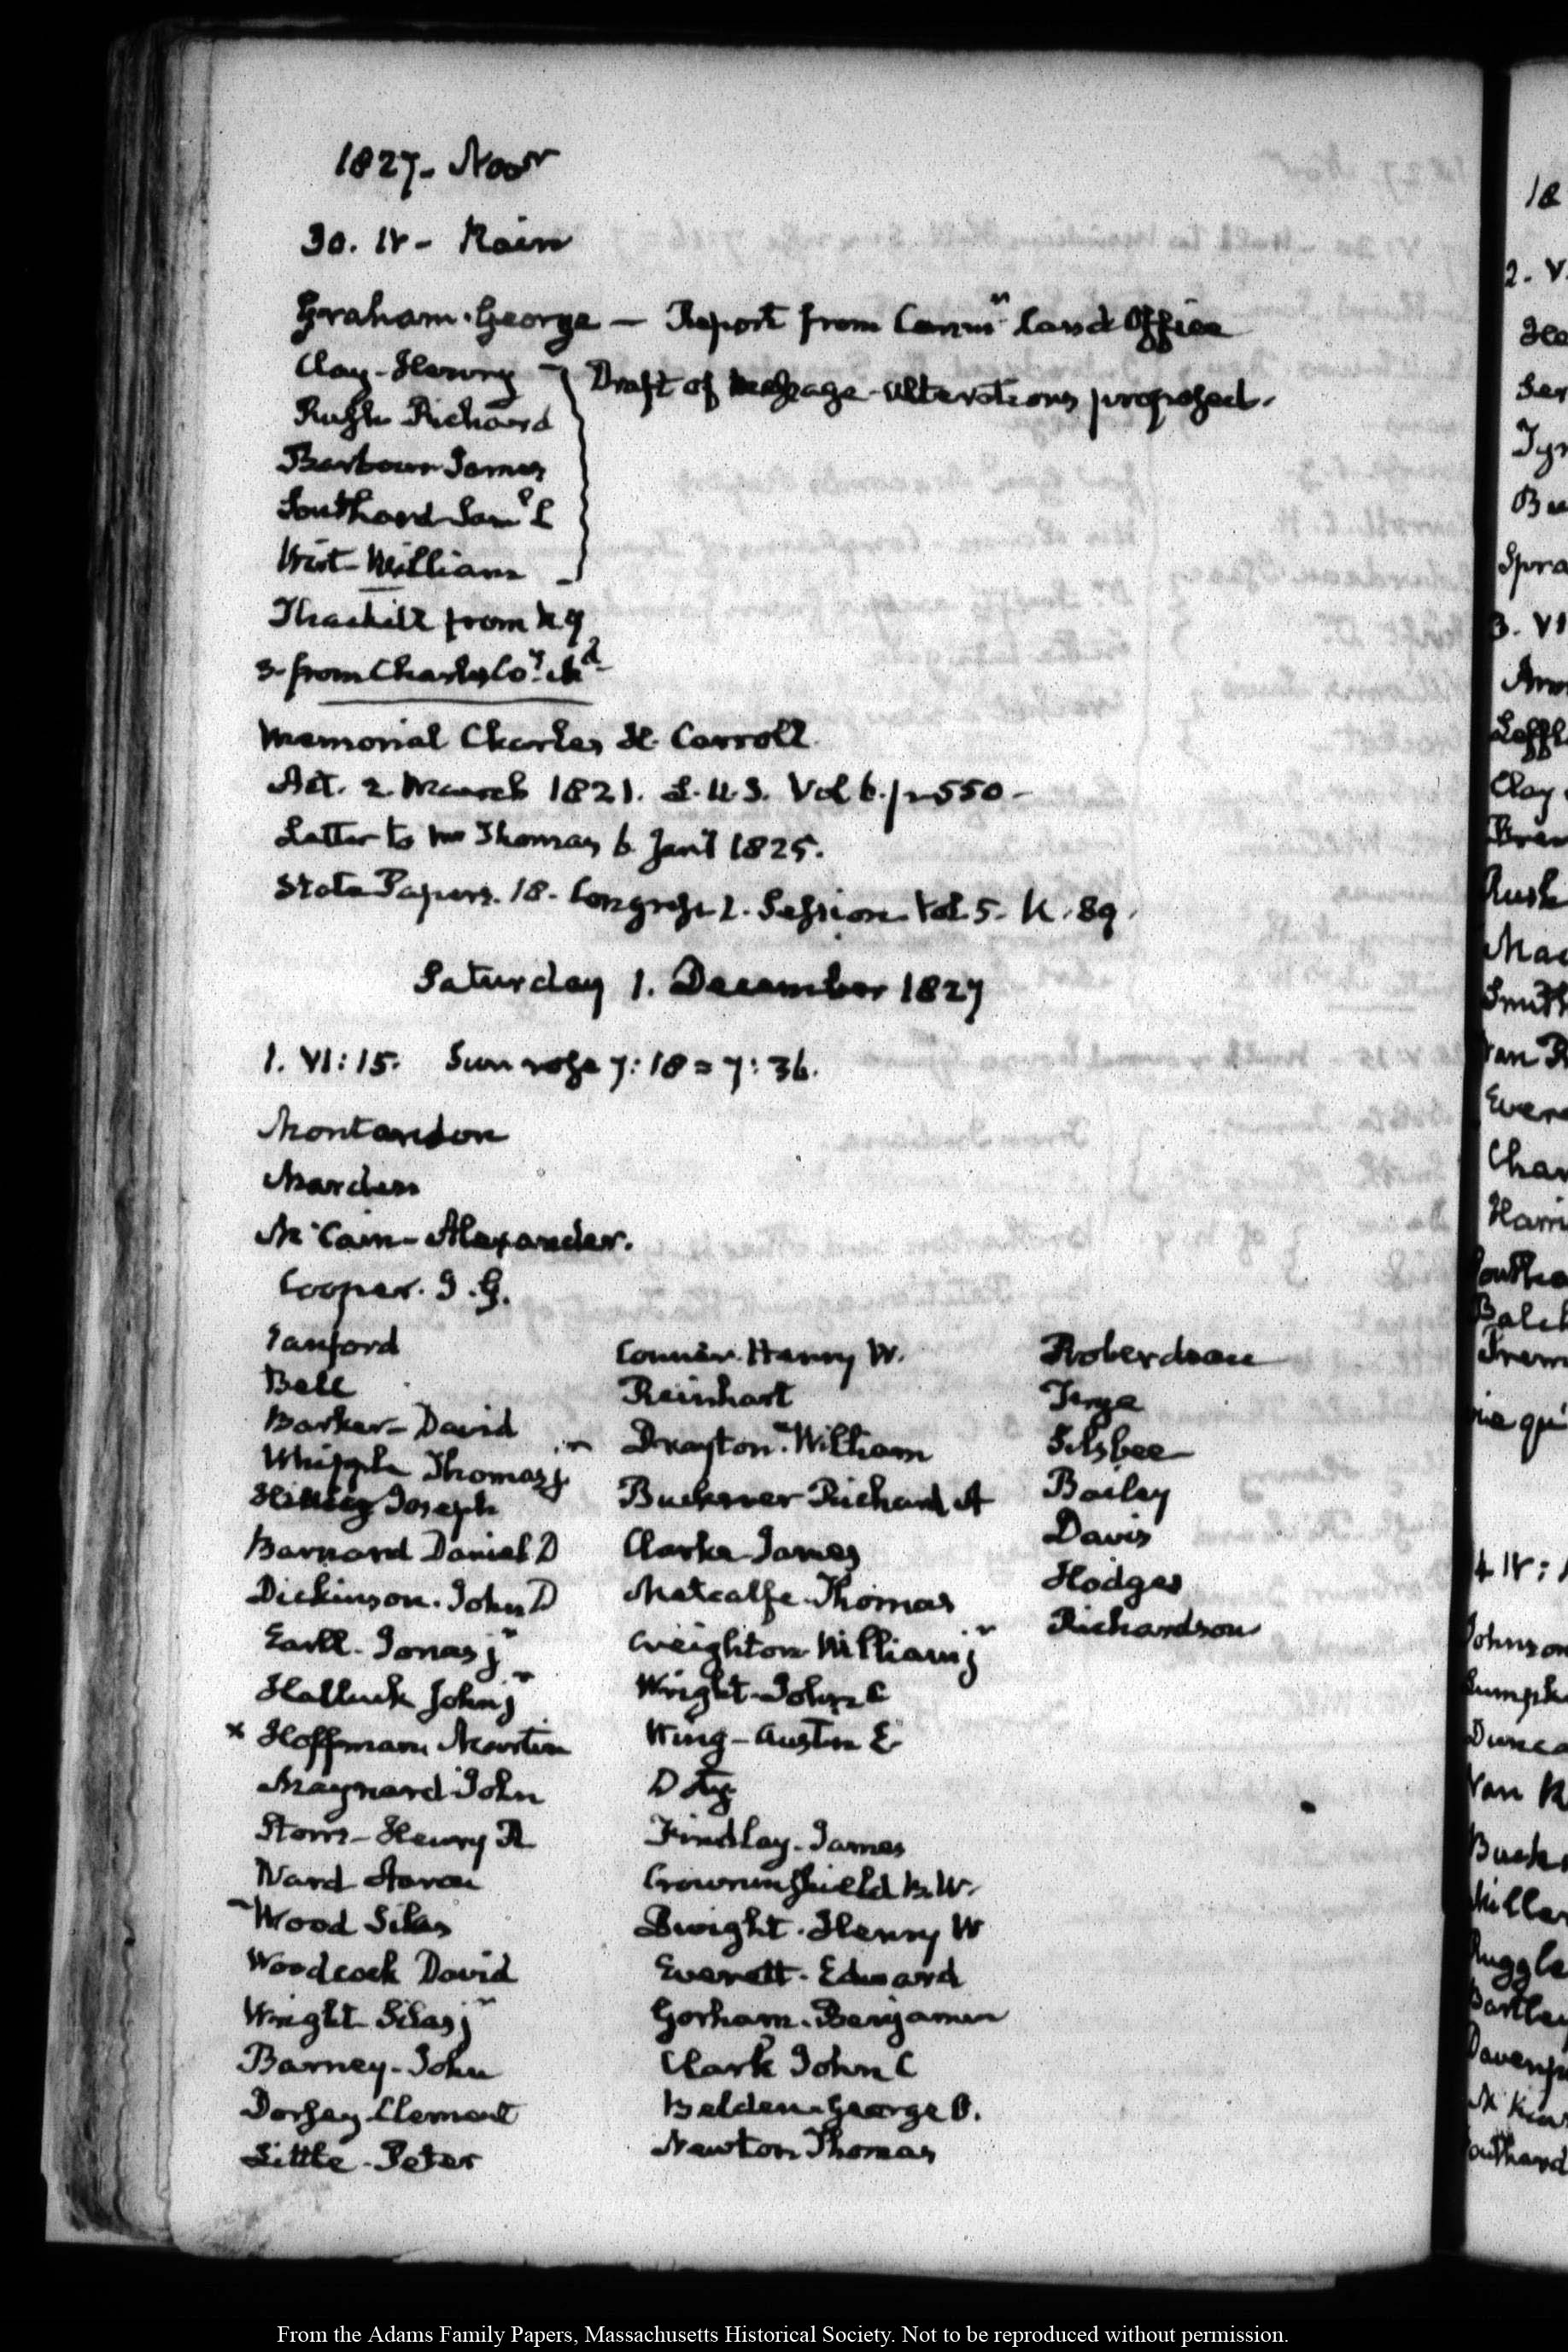 1827. Novr
30. IV - Rain
Graham. George - Report from Commr Land Office
Clay - Henry
Draft of Message - Alterations proposed.
Rush Richard
Barbour James
Southard Saml L
Wirt - William
Thackill from N.Y
3 from Charles Coy. Md
Memorial Charles H. Carroll
Act. 2. March 1821. L.U.S. Vol 6. p 550 -
Letter to Mr Thomas 6 Jany 1825.
State Papers. 18. Congress 2. Session Vol. 5. K. 89.
Saturday 1. December 1827
1. VI:15. Sun rose 7:18 = 7:36.
Montandon
Marden
McCain - Alexander.
Cooper. I. G.
Sanford
Bell
Barker - David jr
Whipple Thomas jr
Healy Joseph
Barnard Daniel D
Dickinson. John D
Earll. Jonas jr
Hallock John jr
x Hoffman Martin
Maynard John
Storrs - Henry R
Ward Aaron
Wood Silas
Woodcock David
Wright Silas jr
Barney - John
Dorsey Clement
Little - Peter
Conner. Henry W.
Reinhart
Drayton. William
Buckner Richard A
Clarke James
Metcalfe. Thomas
Creighton William jr
Wright - John C
Wing - Austin E
Doty
Findlay - James
Crowninshield B. W.
Dwight. Henry W
Everett. Edward
Gorham. Benjamin
Clark John C
Belden George O.
Newton Thomas
Roberdeau
Silsbee
Bailey
Davis
Hodges
Richardson
18
2. V
Clay
Rush
Mac
Smith
Van R
Ever
Char
Harri
Johnson
Lumpk
Dunca
Van R
Buck
Miller
Ruggle
Bartle
Davenp
Southard
From the Adams Family Papers, Massachusetts Historical Society. Not to be reproduced without permission.